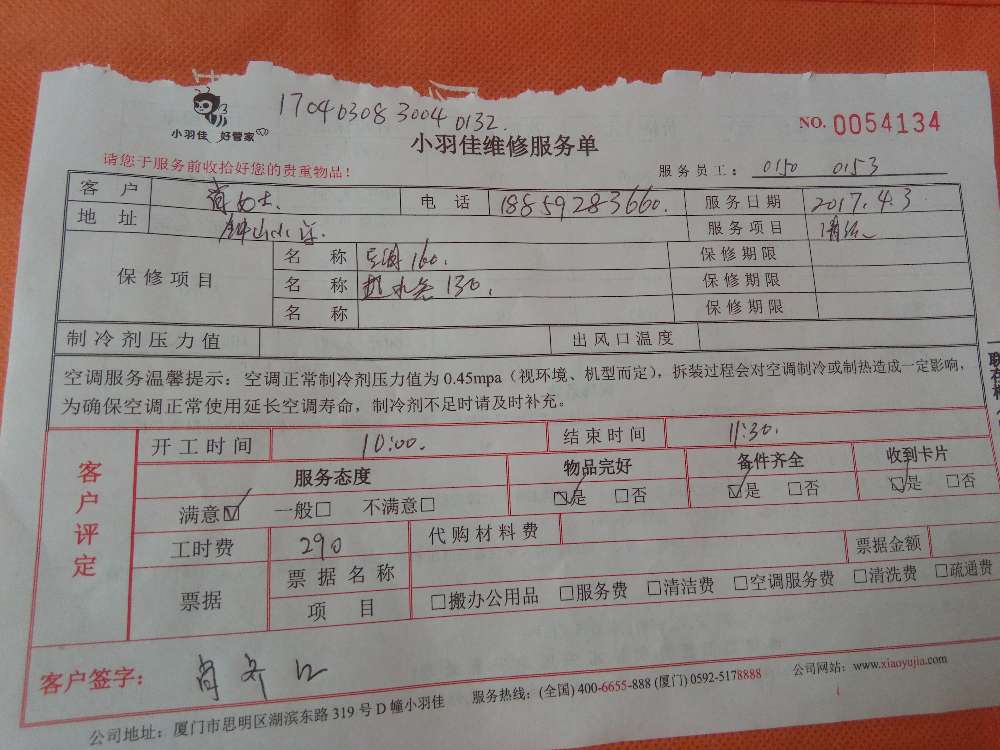 17040308 3004 0132.
小羽佳 好管家
小羽佳维修服务单
NO. 0054134
请您于服务前收拾好您的贵重物品！
服务员工： 0150 0153
客户 肖女士. 电话 18859283660. 服务日期 2017.4.3
地址 钟山小区. 服务项目 清洗
保修项目 名称 空调 160. 保修期限
名称 热水器 130. 保修期限
名称 保修期限
制冷剂压力值 出风口温度
空调服务温馨提示：空调正常制冷剂压力值为 0.45mpa（视环境、机型而定），拆装过程会对空调制冷或制热造成一定影响，
为确保空调正常使用延长空调寿命，制冷剂不足时请及时补充。
客户评定
开工时间 10:00. 结束时间 11:30.
服务态度 物品完好 备件齐全 收到卡片
满意☑ 一般□ 不满意□ ☑是 □否 ☑是 □否 ☑是 □否
工时费 290 代购材料费
票据 票据名称 票据金额
项目 □搬办公用品 □服务费 □清洁费 □空调服务费 □清洗费 □疏通费
客户签字： 肖
公司地址：厦门市思明区湖滨东路 319 号 D 幢小羽佳 服务热线：(全国) 400-6655-888 (厦门) 0592-5178888 公司网站：www.xiaoyujia.com